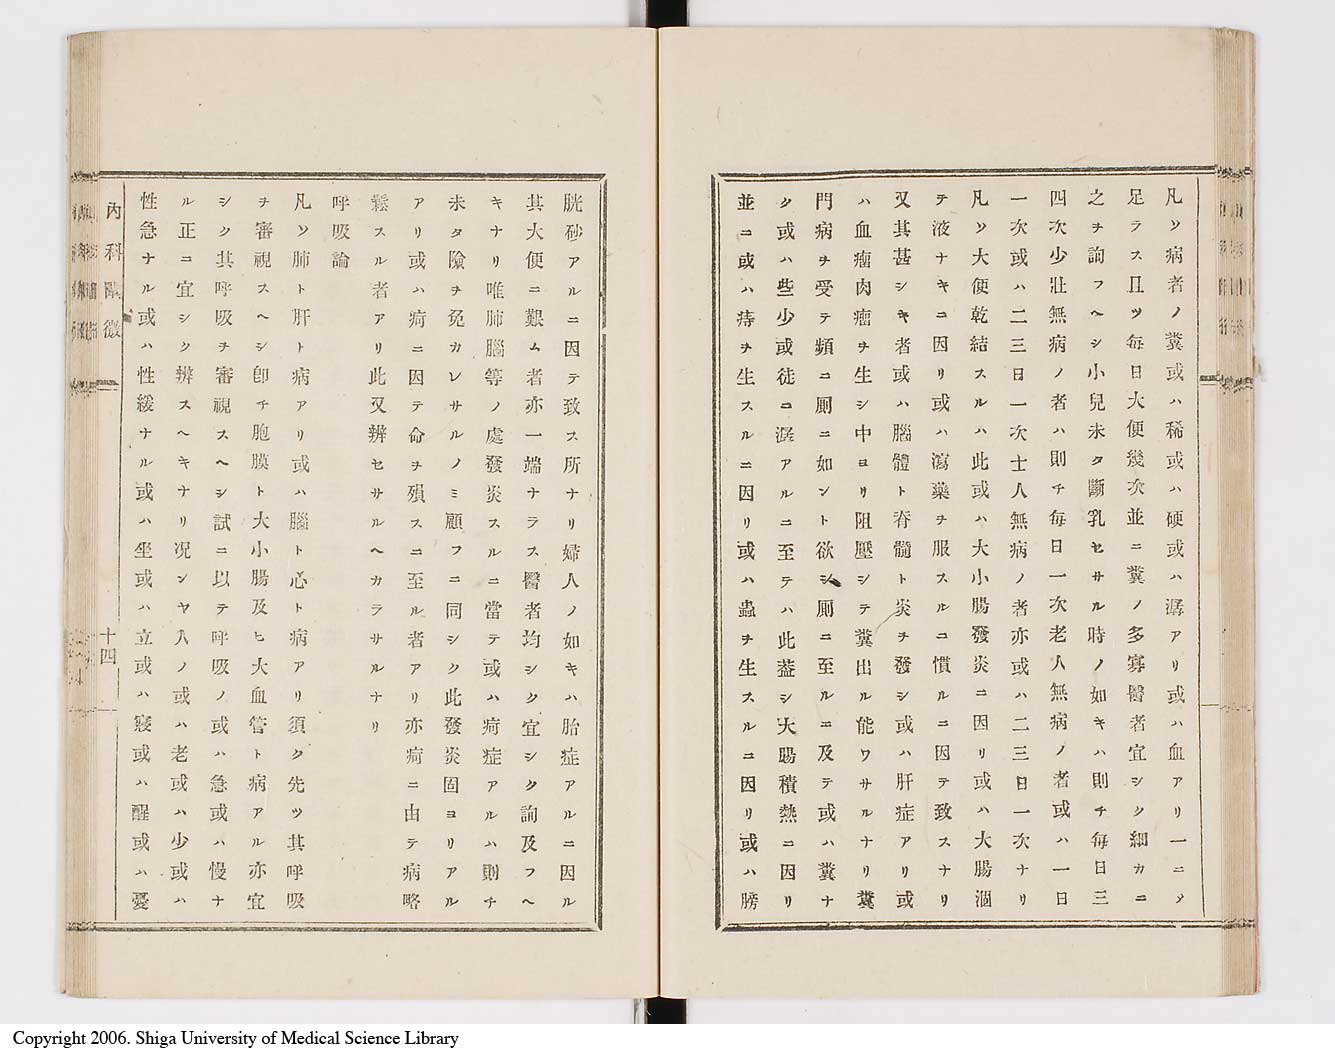 凡ソ病者ノ糞或ハ稀或ハ硬或ハ潺アリ或ハ血アリ一ニメ
足ラス且ツ每日大便幾次並ニ糞ノ多寡醫者宜シク細カニ
之ヲ詢フヘシ小兒未タ斷乳セサル時ノ如キハ則チ每日三
四次少壯無病ノ者ハ則チ每日一次老人無病ノ者或ハ一日
一次或ハ二三日一次士人無病ノ者亦或ハ二三日一次ナリ
凡ソ大便乾結スルハ此或ハ大小腸發炎ニ因リ或ハ大腸涸
テ液ナキニ因リ或ハ瀉藥ヲ服スルコ慣ルニ因テ致スナリ
又其甚シキ者或ハ腦體ト脊髓ト炎ヲ發シ或ハ肝症アリ或
ハ血瘤肉瘤ヲ生シ中ヨリ阻壓シテ糞出ル能ワサルナリ糞
門病ヲ受テ頻ニ厠ニ如ント欲シ厠ニ至ルニ及テ或ハ糞ナ
ク或ハ些少或徒ニ潺アルニ至テハ此葢シ大腸積熱ニ因リ
並ニ或ハ痔ヲ生スルニ因リ或ハ蟲ヲ生スルニ因リ或ハ膀
胱砂アルニ因テ致ス所ナリ婦人ノ如キハ胎症アルニ因ル
其大便ニ艱ム者亦一端ナラス醫者均シク宜シク詢及フヘ
キナリ唯肺腦等ノ處發炎スルニ當テ或ハ疴症アルハ則チ
未タ險ヲ免カレサルノミ顧フニ同シク此發炎固ヨリアル
アリ或ハ疴ニ因テ命ヲ殞スニ至ル者アリ亦疴ニ由テ病略
鬆スル者アリ此又辨セサルヘカラサルナリ
呼吸論
凡ソ肺ト肝ト病アリ或ハ腦ト心ト病アリ須ク先ツ其呼吸
ヲ審視スヘシ卽チ胞膜ト大小腸及ヒ大血管ト病アル亦宜
シク其呼吸ヲ審視スヘシ試ニ以テ呼吸ノ或ハ急或ハ慢ナ
ル正ニ宜シク辨スヘキナリ况ンヤ人ノ或ハ老或ハ少或ハ
性急ナル或ハ性緩ナル或ハ坐或ハ立或ハ寢或ハ醒或ハ憂
內科闡微
十四
Copyright 2006. Shiga University of Medical Science Library